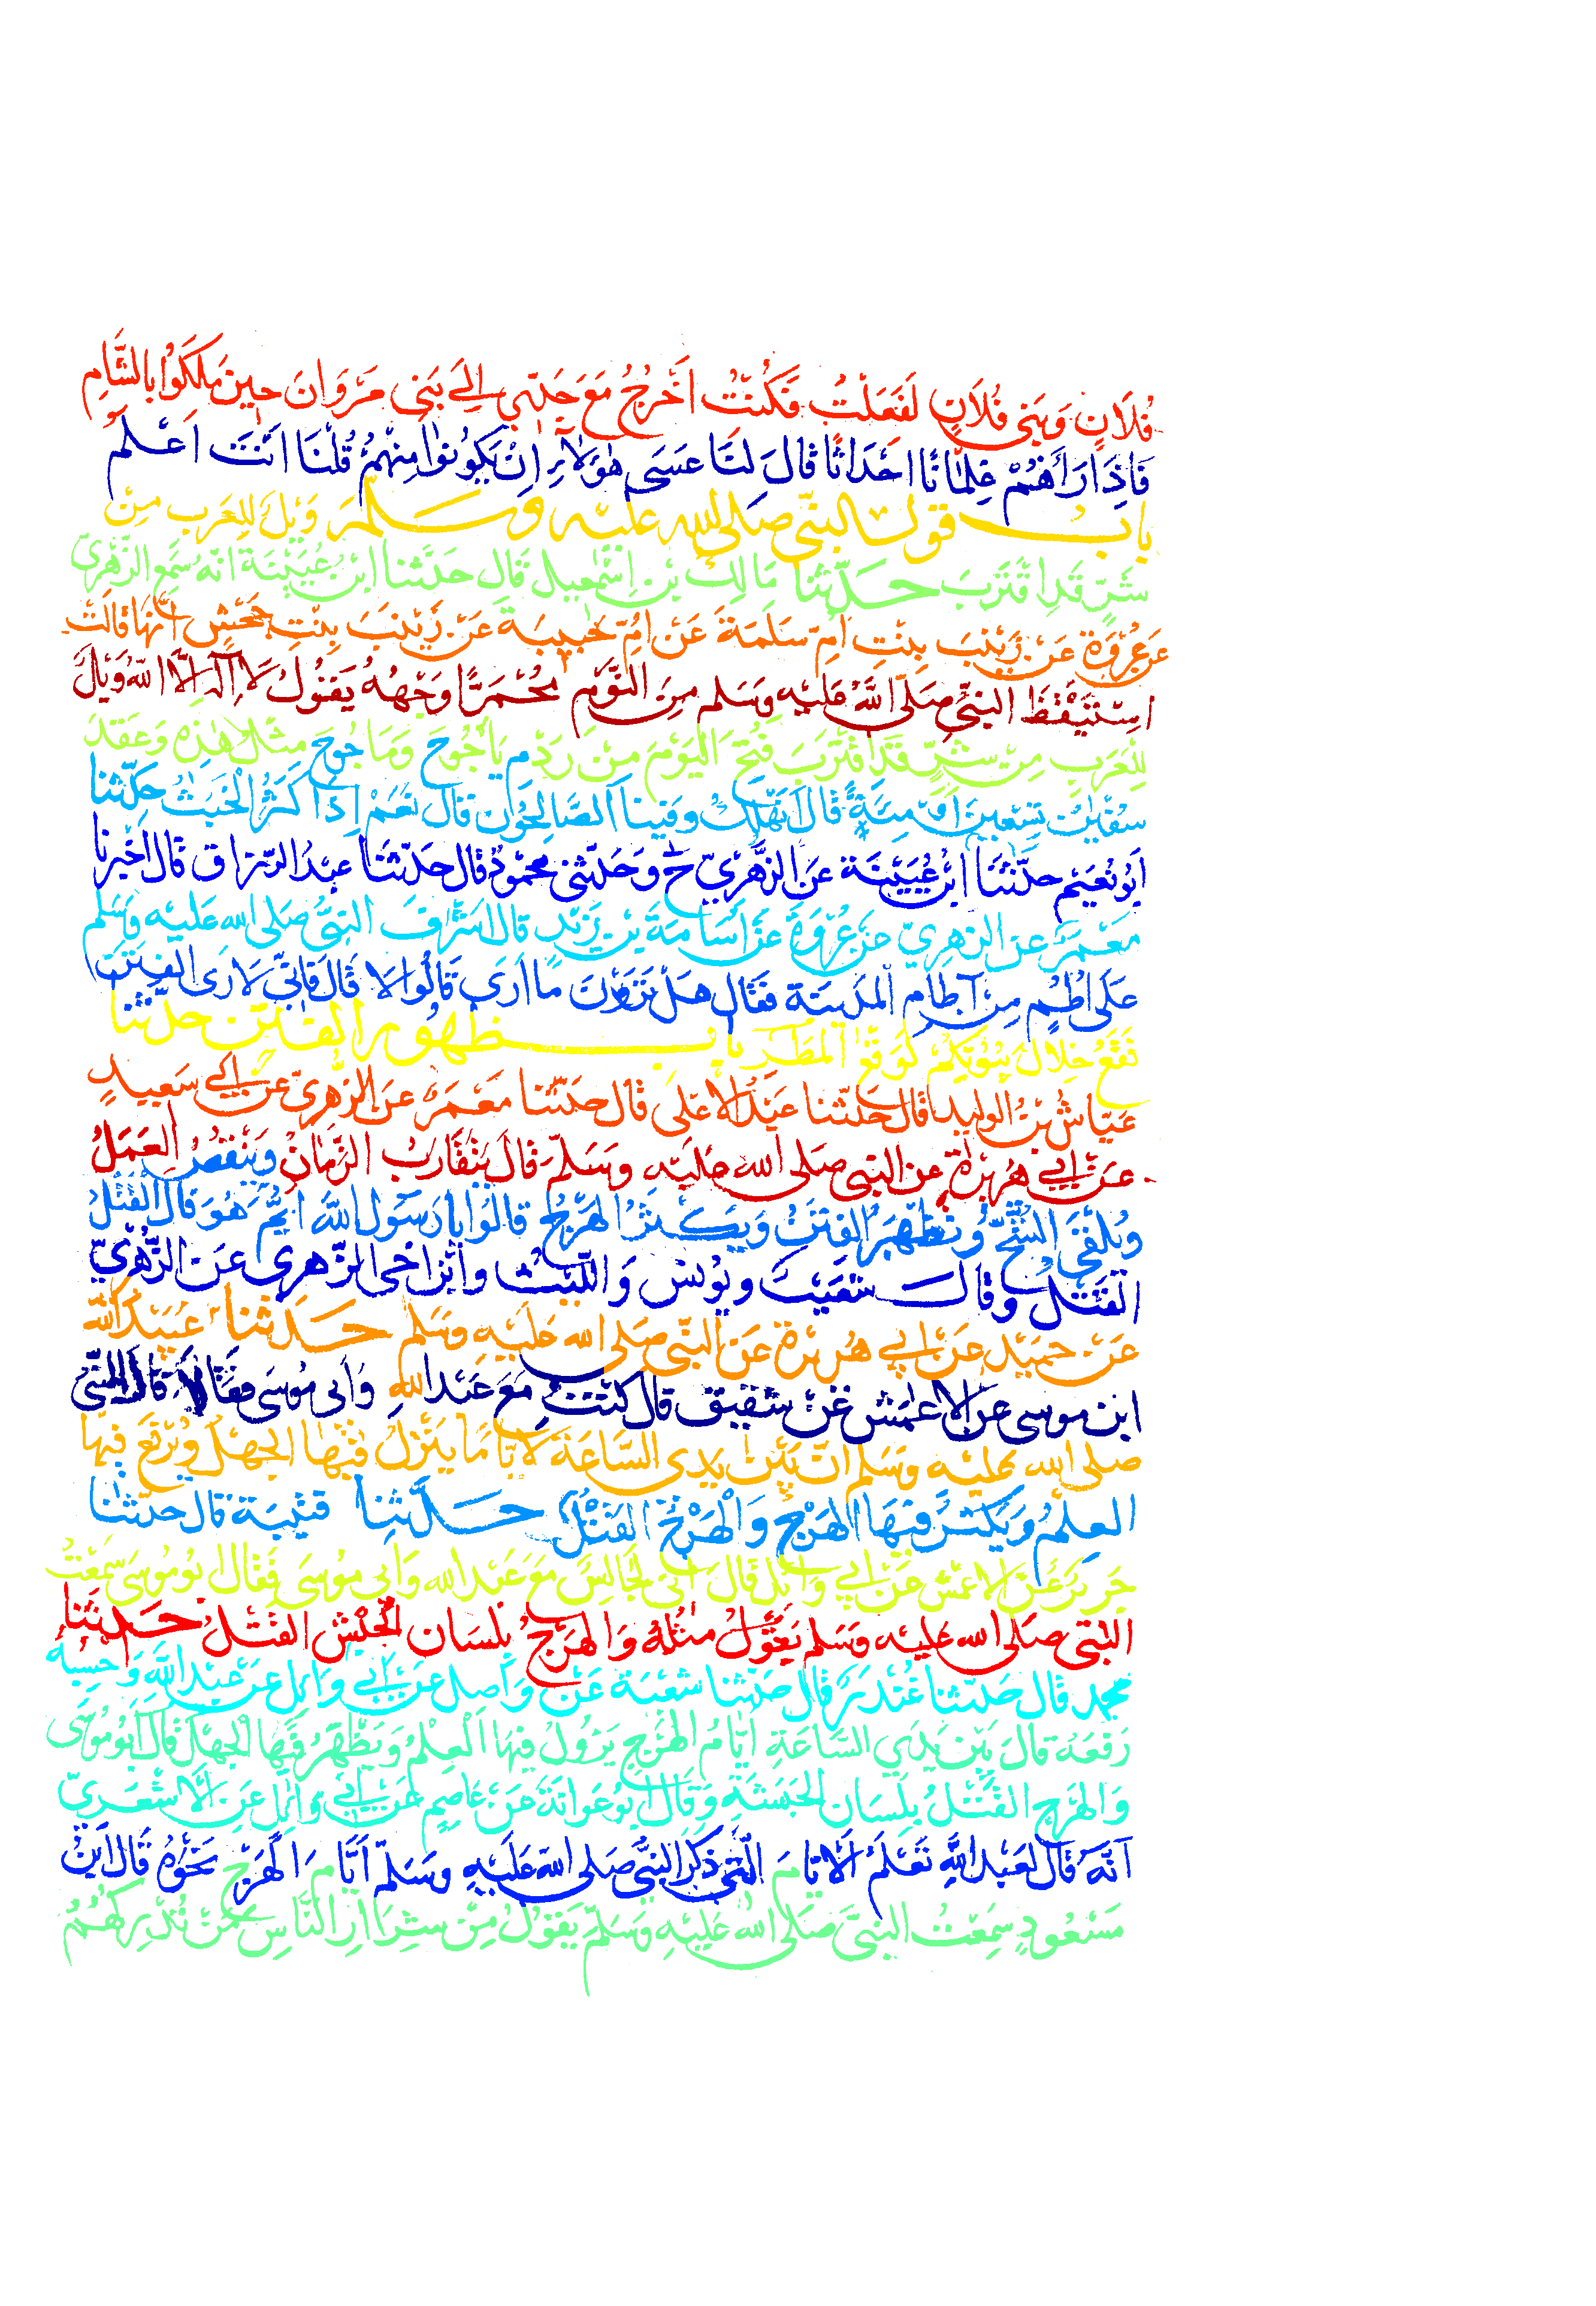 فُلَانٍ وَبَنِى فُلَانٍ لَفَعَلْتُ فَكُنْتُ اَخْرُجُ مَعَ جَدِّي اِلَى بَنِى مَرْوَانَ حِينَ مَلَكُوا بِالشَّامِ
فَاِذَا رَأَهُمْ غِلْمَانًا اَحْدَاثًا قَالَ لَنَا عَسَى هٰؤُلَاءِ اِنْ يَكُونُوا مِنْهُمْ قُلْنَا اَنْتَ اَعْلَمُ
باب قول النبىّ صلى الله عليه وسلّم وَيْلٌ لِلعَرَب مِنْ
شَرٍّ قَدِ اقْتَرَبَ حدّثنا مَالِكُ بْن اِسْمٰعِيل قَال حَدَّثَنا ابْنُ عُيَيْنَةَ انّهُ سَمِعَ الزُّهْرِيّ
عَن عُرْوَةَ عَنْ زَيْنَبَ بِنْتِ اُمّ سَلَمَةَ عَنْ اُمّ حَبِيبَةَ عَنْ زَيْنَبَ بِنْتِ جَحْشٍ اَنّهَا قَالَتْ
اسْتَيْقَظَ النبىُّ صَلّى اللهُ عَلَيْهِ وَسَلم مِنَ النَّوْمِ مُحْمَرًّا وَجْهُهُ يَقُوْلُ لَا اِلٰهَ اِلَّا اللهُ وَيْلٌ
لِلْعَرَبِ مِنْ شَرٍّ قَدِ اقْتَرَبَ فُتِحَ الْيَوْمَ مِنْ رَدْمِ يَأْجُوجَ وَمَاجُوجَ مِثْلُ هٰذِهِ وَعَقَدَ
سُفْيٰنُ تِسْعِينَ اَوْ مِئَةً قَالَ اَنَهْلِكُ وَفِينَا الصَّالِحُوْنَ قَالَ نَعَمْ اِذَا كَثُرَ الْخَبَثُ حَدّثنا
اَبُو نُعَيْمٍ حدّثَنَا ابْنُ عُيَيْنَةَ عَنَ الزُّهْرِيّ ح وَحَدّثنى محْمُوْدٌ قَال حَدّثَنَا عبدُ الرّزاق قَالَ اَخْبَرَنا
مَعْمَرٌ عَن الزهرِيّ عَنْ عُرْوَةَ عَنْ اُسَامَةَ بْنِ زَيْدٍ قال اَشْرَفَ النبىُّ صَلى الله عَليْه وَسَلم
عَلَى اُطُمٍ مِنْ آطَامِ المَدِينَة فَقَالَ هَلْ تَرَوْنَ مَا اَرَى قَالُوا لَا قَالَ فَاِنّى لَاَرَى الفِتَنَ
تَقَعُ خِلَالَ بُيُوْتِكُمْ كَوَقْعِ المَطَرِ باب ظهُور الفتن حدثنا
عَيّاشُ بْنُ الوليد قال حَدّثَنا عَبْدُ الاعْلَى قَال حَدّثنا مَعْمَرٌ عَنَ الزّهرِىّ عَنْ اَبى سَعِيدٍ
عَنْ اَبى هُرَيْرَةَ عن النبى صَلى الله عَليْه وَسَلّمَ قَالَ يَتَقَارَبُ الزَّمَانُ وَيَنْقُصُ العَمَلُ
وَيُلْقَى الشُّحُّ وَتَظْهَرُ الفِتَنُ وَيَكْثُرُ الهَرْجُ قالُوْا يَا رَسُوْل اللهِ اَيُّمَ هُوَ قَالَ القَتْلُ
القَتْلُ وقال شعَيْبٌ ويُوْنس وَاللّيْثُ وابْنُ اخى الزّهرى عَن الزُّهْرِيّ
عَنْ حُمَيْدٍ عَنْ اَبي هُرَيْرَةَ عَنَ النبّى صَلى الله عَليْهِ وسَلم حدثنا عُبَيْدُ الله
ابن موسى عن الاعمَش عَنْ شَقِيْق قَال كنْتُ مَعَ عَبْد اللهِ وَابى مُوْسَى فقَالَا قَالَ النّبىُّ
صلى الله عليْه وَسَلم انّ بَيْنَ يَدى السّاعَة لَاَيّامًا يَنْزلُ فيْهَا الجهْلُ وَيُرْفَعُ فيْهَا
العِلمُ وَيَكْثُرُ فيهَا الهَرْجُ وَالْهَرْجُ القَتْلُ حَدّثنا قتيْبَة قَال حدثنا
جَرِيْرٌ عَن الاعمش عَن اَبي وَائل قَالَ انّى لَجَالِسٌ مَعَ عَبْد الله وَابى مُوْسَى فَقَالَ ابُو مُوْسَى سَمِعْتُ
النبى صَلى الله عليه وَسَلم يَقُوْلُ مثْلَهُ وَالهَرْجُ بلسَان الْحَبَش القَتْلُ حَدثنا
محمد قَال حدّثنَا غُنْدَر قال حدّثنا شعْبَة عَنْ وَاصِل عن اَبي وَائل عَنْ عَبْد الله وَاحْسِبُهُ
رَفَعَهُ قال بَيْنَ يَدَي السَّاعَةِ اَيّامُ الهَرْجِ يَزُوْلُ فيهَا الْعِلْمُ وَيَظْهَرُ فيْهَا الْجهْلُ قَالَ اَبُو مُوْسَى
وَالهَرْج القَتْلُ بلسَان الحَبَشَة وَقَالَ ابُو عَوَانَة عَنْ عَاصِم عَن اَبي وَائِل عَن الَاشْعَرِيّ
اَنّهُ قَالَ لعَبْد اللهِ تَعْلَمُ الَايّامَ الّتى ذَكَرَ النبىُّ صَلى الله عَلَيْهِ وَسَلّمَ اَيَّامَ الْهَرْجِ نَحْوَهُ قَال ابْنُ
مَسْعُوْدٍ سَمِعْتُ النبىَّ صَلى اللهُ عَليْهِ وَسَلّمَ يَقُوْلُ مِنْ شِرَارِ النَّاسِ مَنْ تُدْرِكُهُمُ